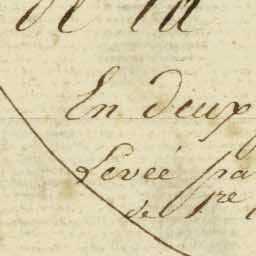 de la
En deux
Levée pa
de 1re